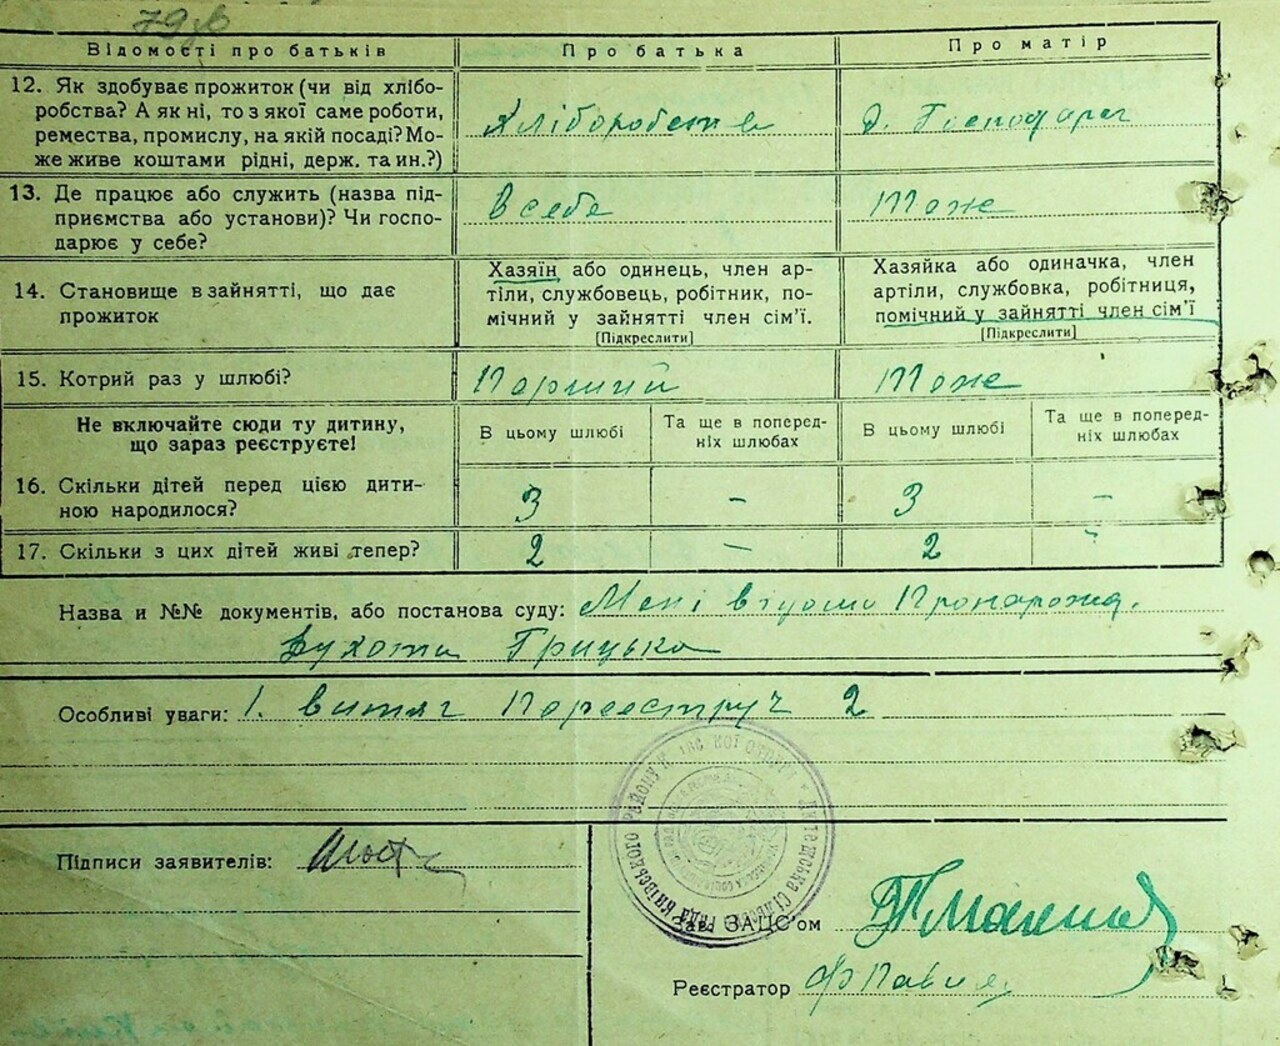 79зв
Відомості про батьків
Про батька
Про матір
12. Як здобуває прожиток (чи від хлібо-
робства? А як ні, то з якої саме роботи,
ремества, промислу, на якій посаді? Мо-
же живе коштами рідні, держ. та ин.?)
Хліборобств
д. Господарст
13. Де працює або служить (назва під-
приємства або установи)? Чи госпо-
дарює у себе?
В себе
Тоже
14. Становище в зайнятті, що дає
прожиток
Хазяїн або одинець, член ар-
тіли, службовець, робітник, по-
мічний у зайнятті член сім'ї.
[Підкреслити]
Хазяйка або одиначка, член
артіли, службовка, робітниця,
помічний у зайнятті член сім'ї
[Підкреслити]
15. Котрий раз у шлюбі?
Перший
Тоже
Не включайте сюди ту дитину,
що зараз реєструєте!
В цьому шлюбі
Та ще в поперед-
ніх шлюбах
В цьому шлюбі
Та ще в поперед-
ніх шлюбах
16. Скільки дітей перед цією дити-
ною народилося?
3
-
3
-
17. Скільки з цих дітей живі тепер?
2
-
2
-
Назва и №№ документів, або постанова суду: Мені відомо
Грицька
Особливі уваги: 1. витяг 2
Підписи заявителів:
району
сільська рада Київського
Зав. ЗАЦС'ом
Реєстратор